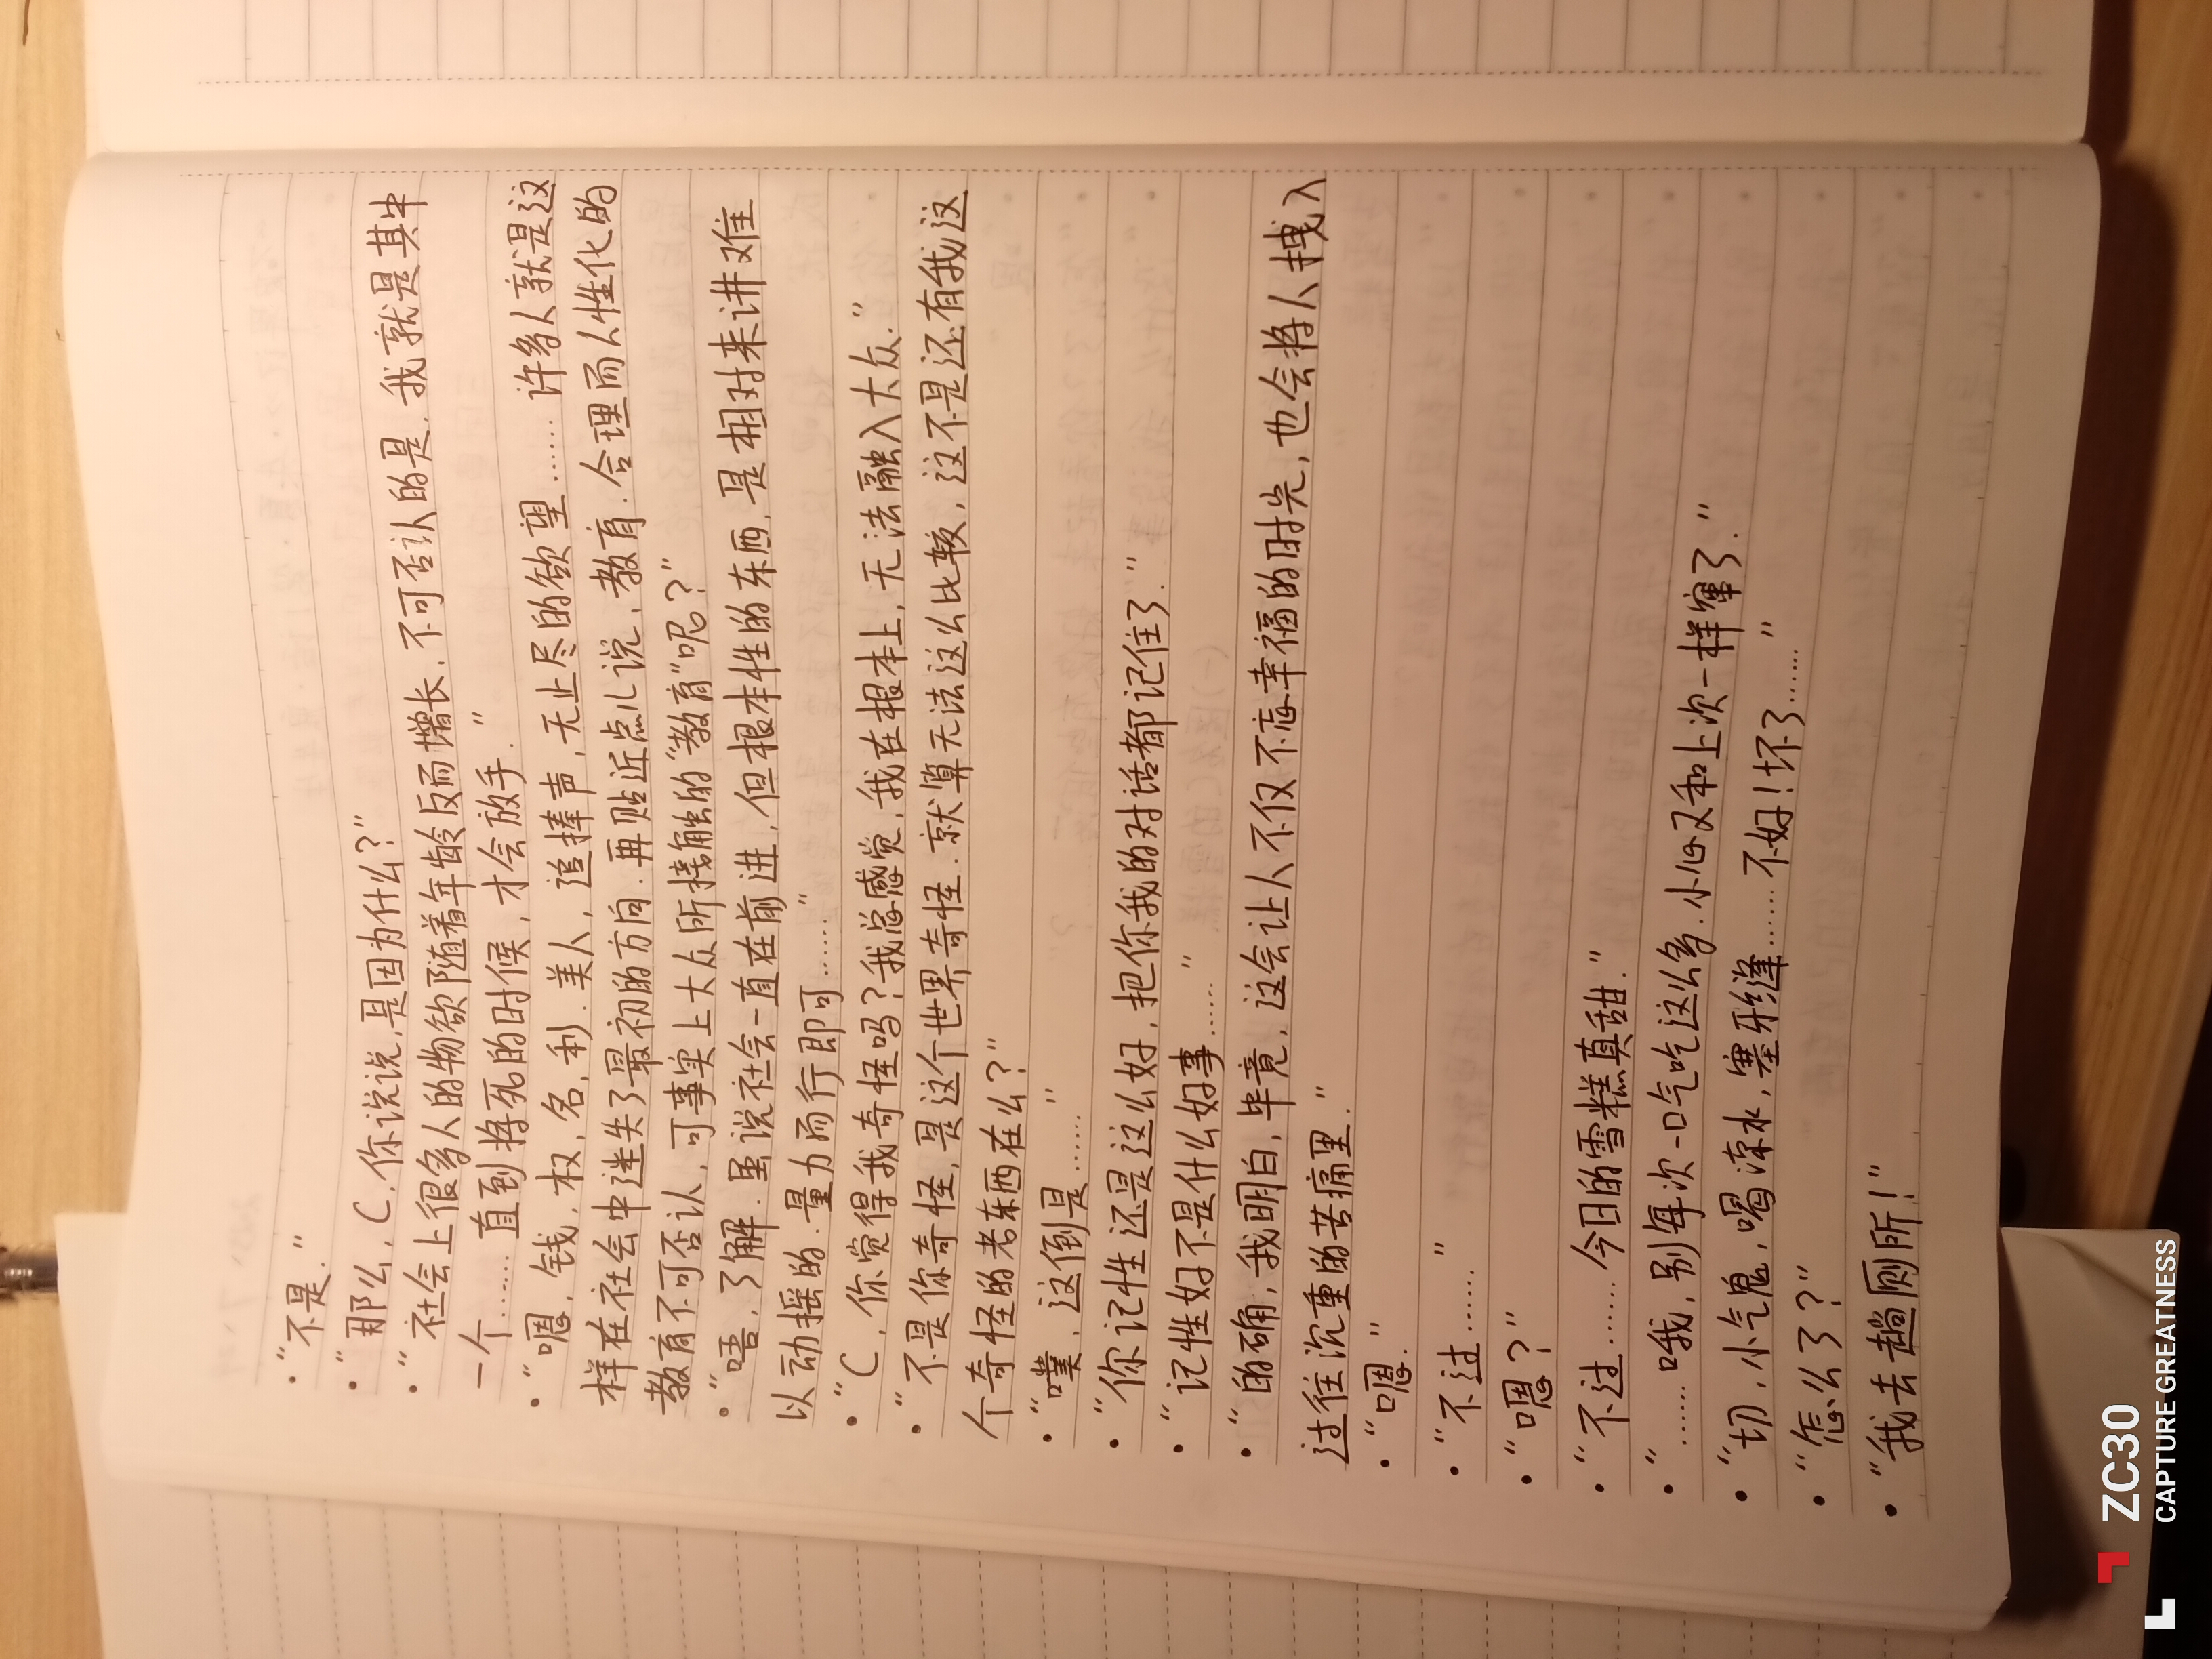 ·“不是.”
·“那么, C, 你说说,是因为什么?”
·“社会上很多人的物欲随着年龄反而增长, 不可否认的是, 我就是其中
一个…… 直到将死的时候, 才会放手.”
·“嗯, 钱, 权, 名, 利, 美人, 追捧声, 无止尽的欲望…… 许多人就是这
样在社会中迷失了最初的方向. 再贴近点儿说, 教育. 合理而人性化的
教育不可否认, 可事实上大众所接触的“教育”呢?”
·“唔, 了解. 虽说社会一直在前进, 但根本性的东西, 是相对来讲难
以动摇的. 量力而行即可……”
·“C, 你觉得我奇怪吗? 我总感觉, 我在根本上, 无法融入大众.”
·“不是你奇怪, 是这个世界奇怪. 就算无法这么比较, 这不是还有我这
个奇怪的老东西在么?”
·“噗, 这倒是……”
·“你记性还是这么好, 把你我的对话都记住了.”
·“记性好不是什么好事……”
·“的确, 我明白, 毕竟, 这会让人不仅不忘幸福的时光, 也会将人拽入
过往沉重的苦痛里.”
·“嗯.”
·“不过……”
·“嗯?”
·“不过…… 今日的雪糕真甜.”
·“……哦, 别每次一口气吃这么多. 小心又和上次一样窜了.”
·“切, 小气鬼, 喝凉水, 塞牙缝…… 不好! 坏了……”
·“怎么了?”
·“我去趟厕所!”
ZC30
CAPTURE GREATNESS